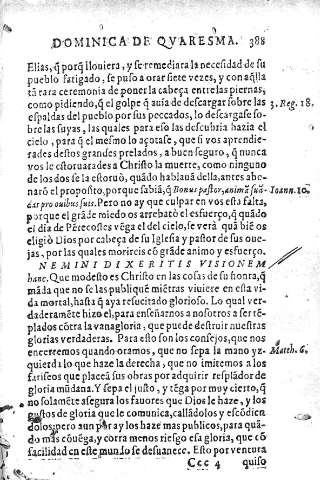 DOMINICA DE QVARESMA. 388
Elias, q̃ porq̃ llouiera, y se remediara la necesidad de su
pueblo fatigado, se puso a orar siete vezes, y con aq̃lla
tã rara ceremonia de poner la cabeça entre las piernas,
como pidiendo, q̃ el golpe q̃ auia de descargar sobre las 3. Reg. 18.
espaldas del pueblo por sus peccados, lo descargase so-
bre las suyas, las quales para eso las descubria hazia el
cielo, para q̃ el mismo lo açotase, que si vos aprendie-
rades destos grandes prelados, a buen seguro, q̃ nunca
vos le estoruarades a Christo la muerte, como ninguno
de los dos se la estoruò, quãdo hablaua della, antes abo-
narõ el proposito, porque sabiã, q̃ Bonus pastor, animã suã Ioann. 10.
dat pro ouibus suis. Pero no ay que culpar en vos esta falta,
porque el grãde miedo os arrebatò el esfuerço, q̃ quãdo
el dia de Pẽtecostes vẽga el del cielo, se verà quã biẽ os
eligiò Dios por cabeça de su Iglesia y pastor de sus oue-
jas, por las quales morireis cõ grãde animo y esfuerço.
NEMINI DIXERITIS VISIONEM
hanc. Que modesto es Christo en las cosas de su honra, q̃
mãda que no se las publiquẽ miẽtras viuiere en esta vi-
da mortal, hasta q̃ aya resucitado glorioso. Lo qual ver-
daderamẽte hizo el, para enseñarnos a nosotros a ser tẽ-
plados cõtra la vanagloria, que puede destruir nuestras
glorias verdaderas. Para esto son los consejos, que nos
encerremos quando oramos, que no sepa la mano yz- Matth. 6.
quierda lo que haze la derecha, que no imitemos a los
fariseos que placeã sus obras por adquirir resplãdor de
gloria mũdana. Y sepa el justo, y tẽga por muy cierto, q̃
no solamẽte asegura los fauores que Dios le haze, y los
gustos de gloria que le comunica, callãdolos y escõdien
dolos: pero aun por ay los haze mas publicos, para quã-
do mas cõuẽga, y corra menos riesgo esa gloria, que cõ
facilidad en este mundo se desuanece. Esto por ventura
Ccc 4 quiso